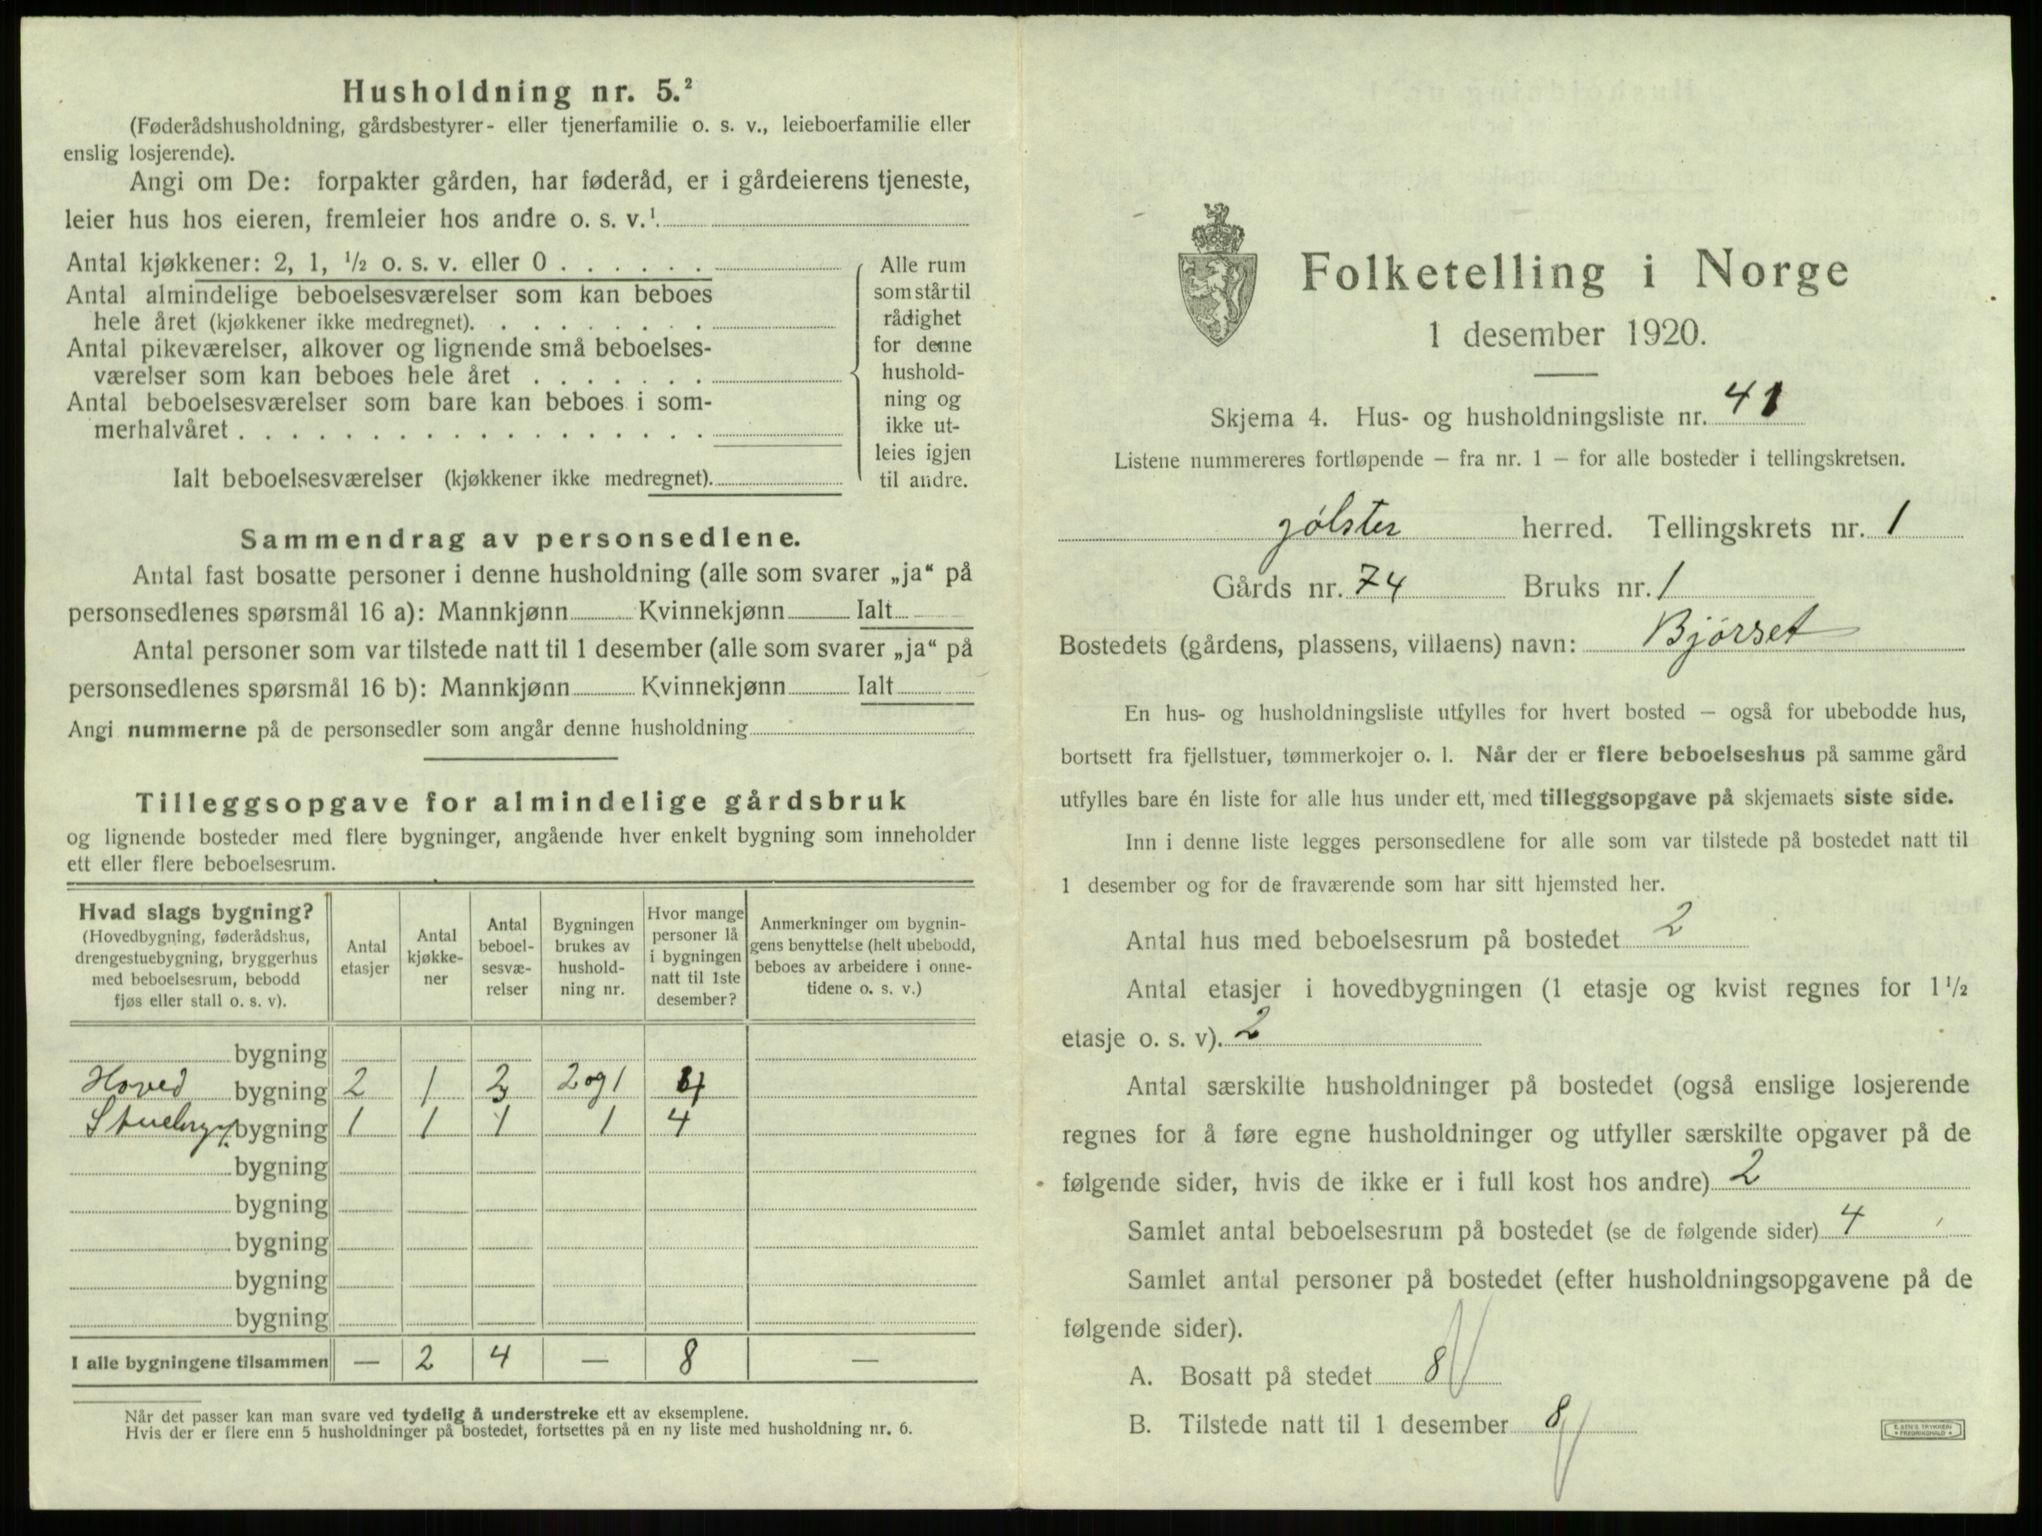 Husholdning nr. 5.²
(Føderådshusholdning, gårdsbestyrer- eller tjenerfamilie o. s. v., leieboerfamilie eller
enslig losjerende).
Angi om De: forpakter gården, har føderåd, er i gårdeierens tjeneste,
leier hus hos eieren, fremleier hos andre o. s. v.¹
Antal kjøkkener: 2, 1, ½ o. s. v. eller 0 . . . . . .
Antal almindelige beboelsesværelser som kan beboes
hele året (kjøkkener ikke medregnet). . . . . . . . .
Antal pikeværelser, alkover og lignende små beboelses-
værelser som kan beboes hele året . . . . . . .
Antal beboelsesværelser som bare kan beboes i som-
merhalvåret . . . . . . . . . . . . . . . . . .
Ialt beboelsesværelser (kjøkkener ikke medregnet).
Alle rum
som står til
rådighet
for denne
hushold-
ning og
ikke ut-
leies igjen
til andre.
Sammendrag av personsedlene.
Antal fast bosatte personer i denne husholdning (alle som svarer „ja“ på
personsedlenes spørsmål 16 a): Mannkjønn Kvinnekjønn Ialt
Antal personer som var tilstede natt til 1 desember (alle som svarer „ja“ på
personsedlenes spørsmål 16 b): Mannkjønn Kvinnekjønn Ialt
Angi nummerne på de personsedler som angår denne husholdning
Tilleggsopgave for almindelige gårdsbruk
og lignende bosteder med flere bygninger, angående hver enkelt bygning som inneholder
ett eller flere beboelsesrum.
Hvad slags bygning?
(Hovedbygning, føderådshus,
drengestuebygning, bryggerhus
med beboelsesrum, bebodd
fjøs eller stall o. s. v).
Antal
etasjer
Antal
kjøkke-
ner
Antal
beboel-
sesvæ-
relser
Bygningen
brukes av
hushold-
ning nr.
Hvor mange
personer lå
i bygningen
natt til 1ste
desember?
Anmerkninger om bygnin-
gens benyttelse (helt ubebodd,
beboes av arbeidere i onne-
tidene o. s. v.)
bygning
Hoved bygning 2 1 3 2 og 1 4
bygning 1 1 1 1 4
bygning
bygning
bygning
bygning
bygning
I alle bygningene tilsammen — 2 4 — 8 —
Når det passer kan man svare ved tydelig å understreke ett av eksemplene.
Hvis der er flere enn 5 husholdninger på bostedet, fortsettes på en ny liste med husholdning nr. 6.
Folketelling i Norge
1 desember 1920.
Skjema 4. Hus- og husholdningsliste nr. 41
Listene nummereres fortløpende – fra nr. 1 – for alle bosteder i tellingskretsen.
Jølster herred. Tellingskrets nr. 1
Gårds nr. 74 Bruks nr. 1
Bostedets (gårdens, plassens, villaens) navn: Bjørset
En hus- og husholdningsliste utfylles for hvert bosted – også for ubebodde hus,
bortsett fra fjellstuer, tømmerkojer o. l. Når der er flere beboelseshus på samme gård
utfylles bare én liste for alle hus under ett, med tilleggsopgave på skjemaets siste side.
Inn i denne liste legges personsedlene for alle som var tilstede på bostedet natt til
1 desember og for de fraværende som har sitt hjemsted her.
Antal hus med beboelsesrum på bostedet 2
Antal etasjer i hovedbygningen (1 etasje og kvist regnes for 1 ½
etasje o. s. v). 2
Antal særskilte husholdninger på bostedet (også enslige losjerende
regnes for å føre egne husholdninger og utfyller særskilte opgaver på de
følgende sider, hvis de ikke er i full kost hos andre) 2
Samlet antal beboelsesrum på bostedet (se de følgende sider) 4
Samlet antal personer på bostedet (efter husholdningsopgavene på de
følgende sider).
A. Bosatt på stedet 8
B. Tilstede natt til 1 desember 8